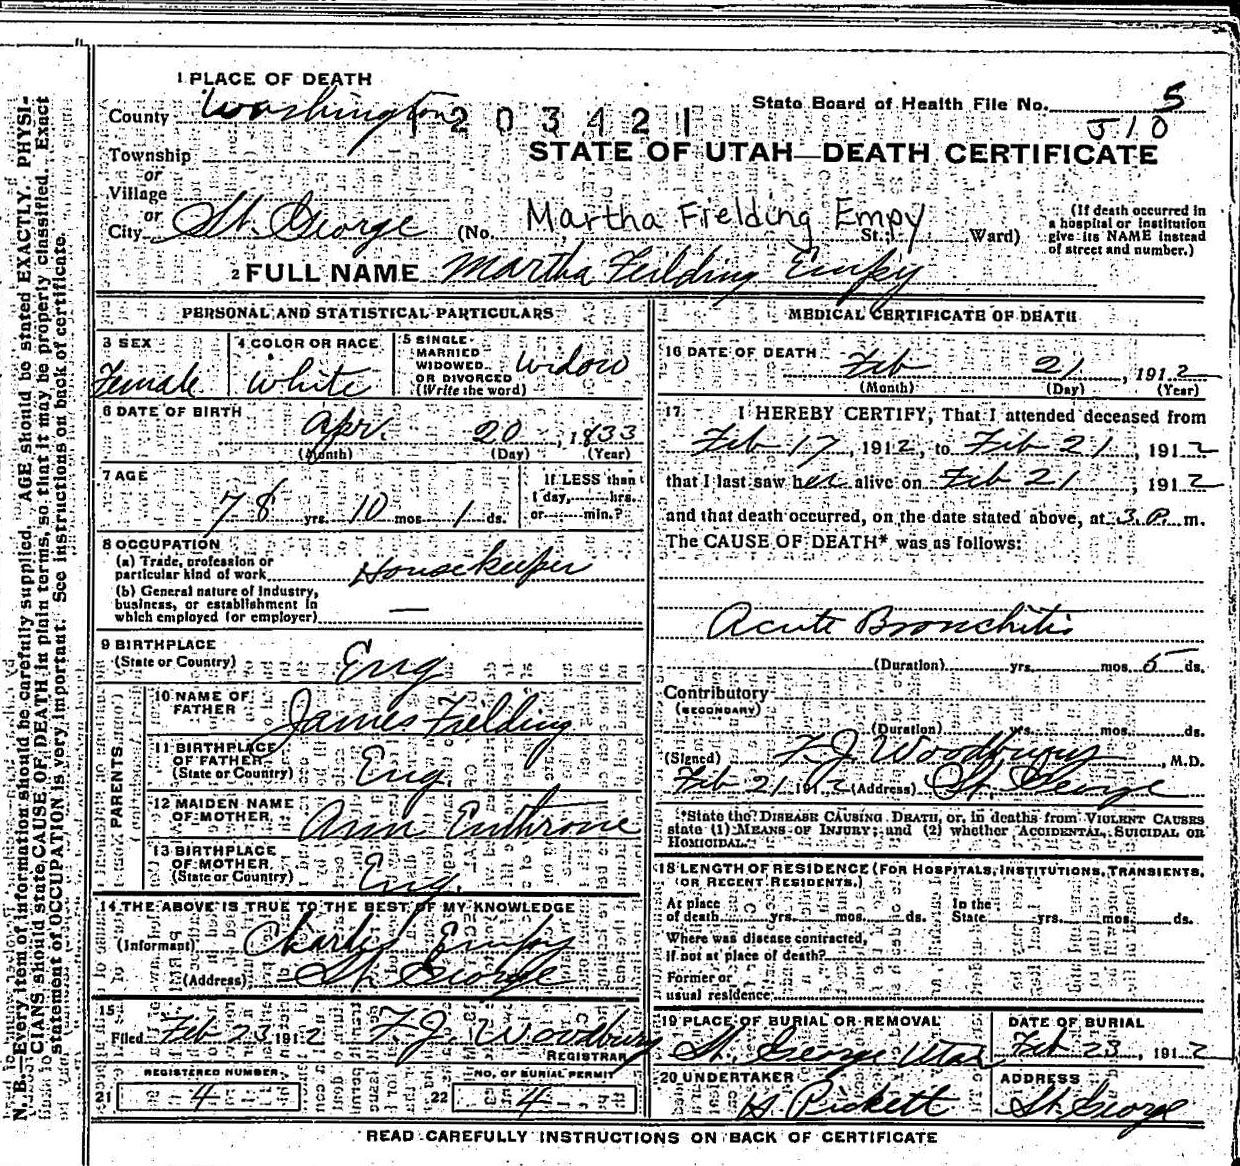 1 PLACE OF DEATH
County Washington
1203421
State Board of Health File No. 5
510
STATE OF UTAH—DEATH CERTIFICATE
Township
or
Village
or
City St. George (No. Martha Fielding Empy St.; Ward)
(If death occurred in a hospital or institution give its NAME instead of street and number.)
2 FULL NAME Martha Feilding Empy
PERSONAL AND STATISTICAL PARTICULARS
3 SEX Female
4 COLOR OR RACE White
5 SINGLE MARRIED WIDOWED OR DIVORCED (Write the word) Widow
6 DATE OF BIRTH
Apr. 20, 1833
(Month) (Day) (Year)
7 AGE
78 yrs. 10 mos. 1 ds.
If LESS than 1 day, hrs. or min.?
8 OCCUPATION
(a) Trade, profession or particular kind of work Housekeeper
(b) General nature of industry, business, or establishment in which employed (or employer) —
9 BIRTHPLACE (State or Country) Eng
PARENTS
10 NAME OF FATHER James Fielding
11 BIRTHPLACE OF FATHER (State or Country) Eng
12 MAIDEN NAME OF MOTHER Ann
13 BIRTHPLACE OF MOTHER (State or Country) Eng.
14 THE ABOVE IS TRUE TO THE BEST OF MY KNOWLEDGE
(Informant) Charles Empy
(Address) St. George
15
Filed Feb 23 1912 F. J. Woodbury
REGISTRAR
REGISTERED NUMBER
21 4
NO. OF BURIAL PERMIT
22 4
MEDICAL CERTIFICATE OF DEATH
16 DATE OF DEATH
Feb 21, 1912
(Month) (Day) (Year)
17 I HEREBY CERTIFY, That I attended deceased from
Feb 17, 1912, to Feb 21, 1912
that I last saw her alive on Feb 21, 1912
and that death occurred, on the date stated above, at 3 P. m.
The CAUSE OF DEATH* was as follows:
Acute Bronchitis
(Duration) yrs. mos. 5 ds.
Contributory (SECONDARY)
(Duration) yrs. mos. ds.
(Signed) F. J. Woodbury, M.D.
Feb 21 1912 (Address) St. George
*State the DISEASE CAUSING DEATH, or, in deaths from VIOLENT CAUSES
state (1) MEANS OF INJURY; and (2) whether ACCIDENTAL, SUICIDAL OR
HOMICIDAL.
18 LENGTH OF RESIDENCE (FOR HOSPITALS, INSTITUTIONS, TRANSIENTS,
OR RECENT RESIDENTS.)
At place of death yrs. mos. ds. In the State yrs. mos. ds.
Where was disease contracted,
If not at place of death?
Former or
usual residence
19 PLACE OF BURIAL OR REMOVAL
St. George Utah
DATE OF BURIAL
Feb 23, 1912
20 UNDERTAKER
Pickett
ADDRESS
St. George
READ CAREFULLY INSTRUCTIONS ON BACK OF CERTIFICATE
N. B.—Every item of information should be carefully supplied. AGE should be stated EXACTLY. PHYSI-
CIANS should state CAUSE OF DEATH in plain terms, so that it may be properly classified. Exact
statement of OCCUPATION is very important. See instructions on back of certificate.